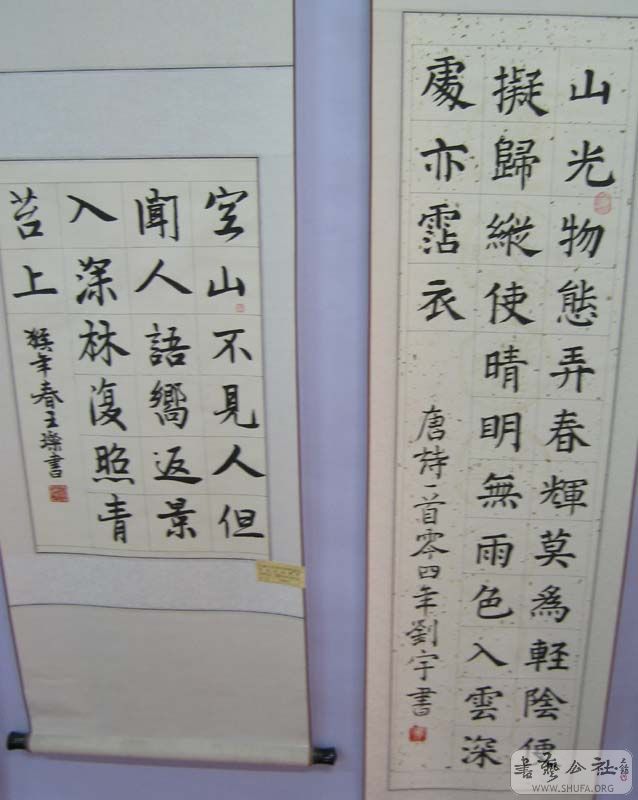 山光物態弄春輝莫爲輕陰便
擬歸縱使晴明無雨色入雲深
處亦霑衣
唐詩一首零四年劉宇書
空山不見人但
聞人語嚮返景
入深林復照青
苔上
猴年春王璨書
書藝公社
WWW.SHUFA.ORG